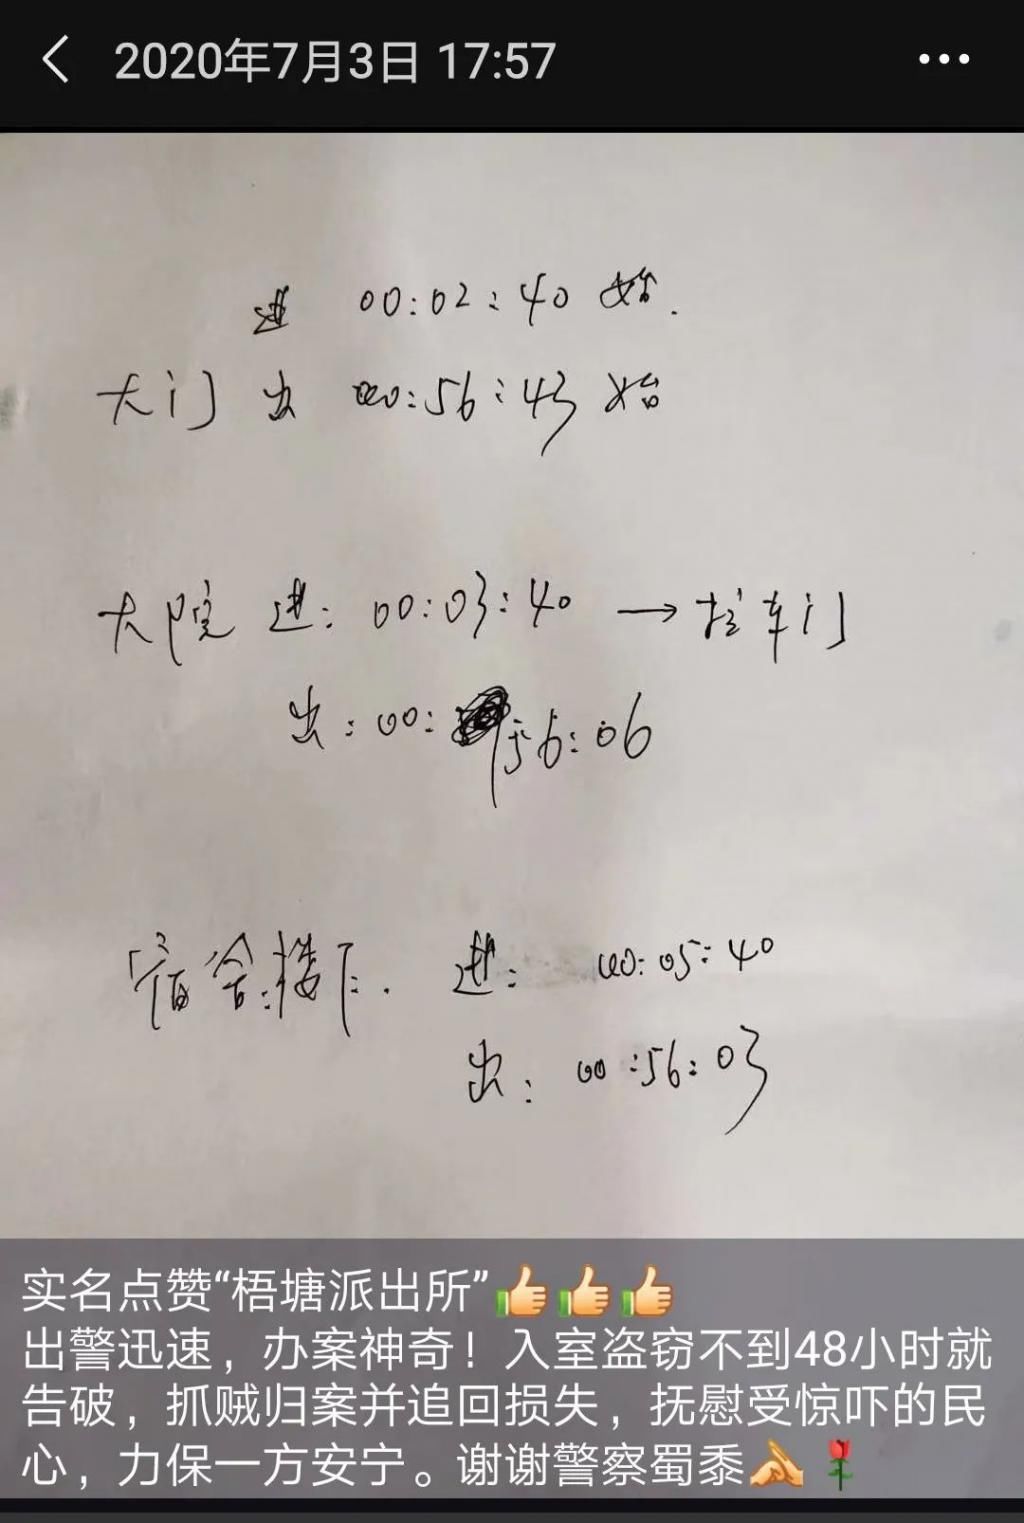 2020年7月3日 17:57
进 00:02:40 始.
大门 出 00:56:43 始
大院 进: 00:03:40 → 拉车门
出: 00: 56:06
宿舍楼下. 进: 00:05:40
出: 00:56:03
实名点赞“梧塘派出所”👍👍👍
出警迅速，办案神奇！入室盗窃不到48小时就
告破，抓贼归案并追回损失，抚慰受惊吓的民
心，力保一方安宁。谢谢警察蜀黍